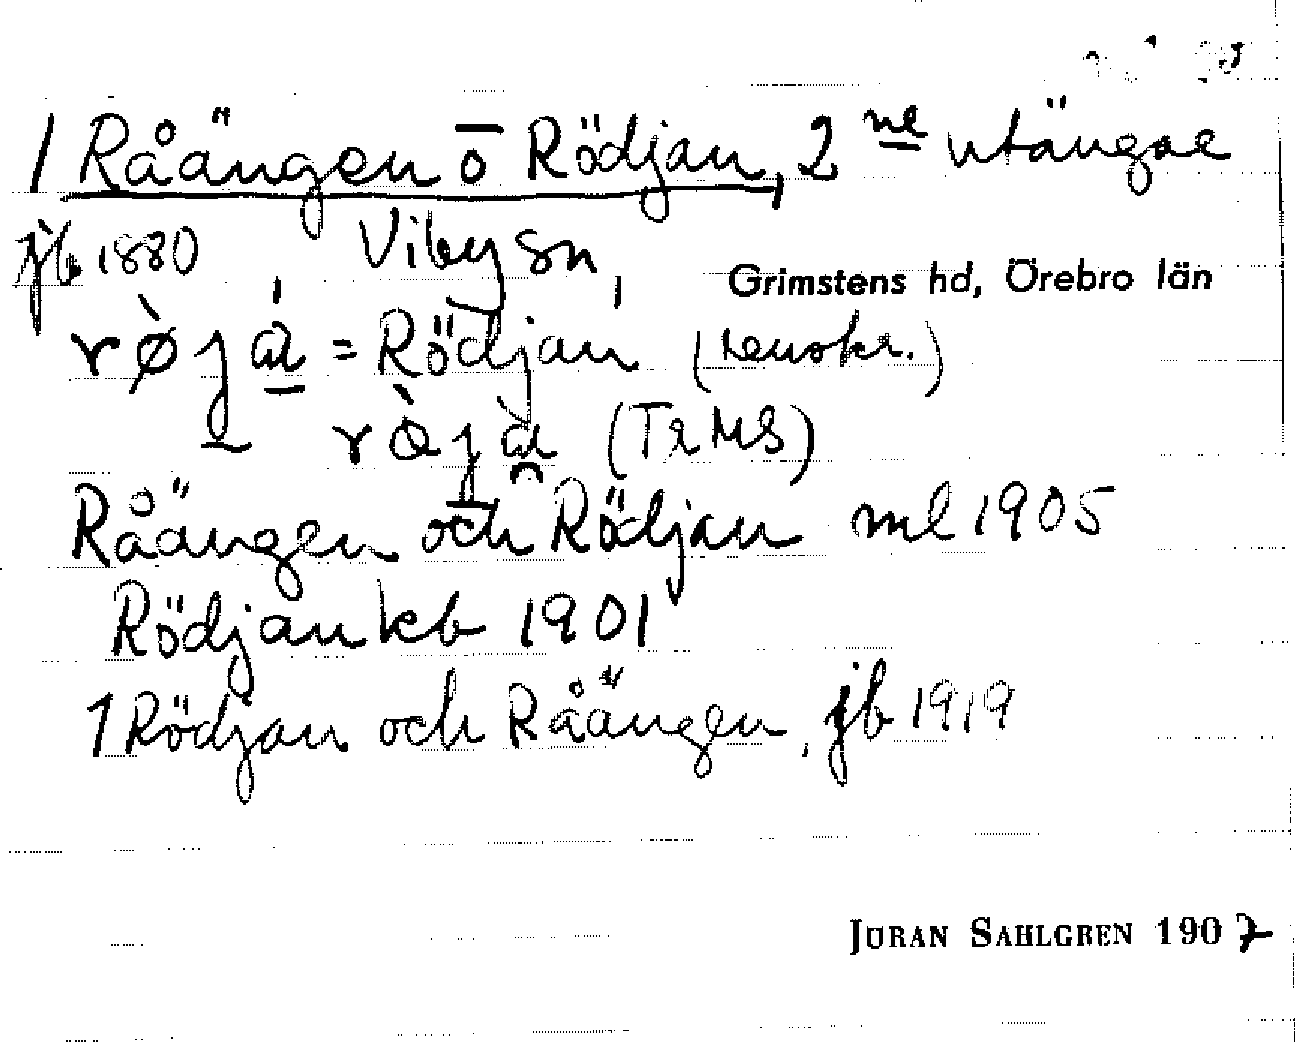 1 Råängen o̅ Rödjan, 2 ne utängar
jb 1880 Viby sn, Grimstens hd, Örebro län
= Rödjan
(Tr MS)
Råängen och Rödjan ml 1905
Rödjan kb 1901
1 Rödjan och Råängen, jb 1919
JÖRAN SAHLGREN 1907